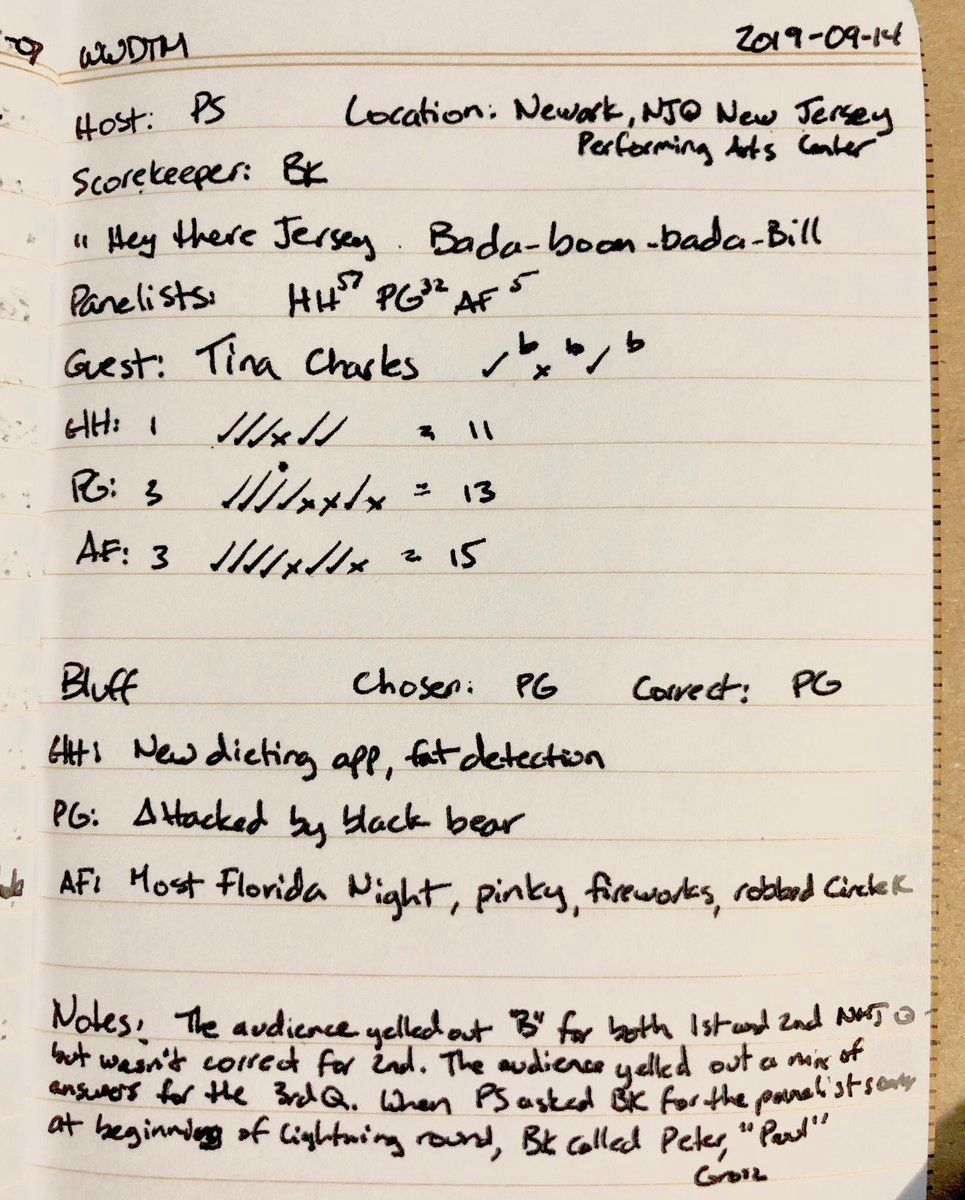 WWDTM 2019-09-14
Host: PS Location: Newark, NJ @ New Jersey
Performing Arts Center
Scorekeeper: BK
"Hey there Jersey. Bada-boom-bada-Bill
Panelists: HH 57 PG 32 AF 5
Guest: Tina Charles ✓ b x b ✓ b
HH: 1 ✓✓✓x✓✓ = 11
PG: 3 ✓✓✓✓xx✓x = 13
AF: 3 ✓✓✓✓x✓✓x = 15
Bluff Chosen: PG Correct: PG
HH: New dieting app, fat detection
PG: Attacked by black bear
AF: Most Florida Night, pinky, fireworks, robbed Circle K
Notes: The audience yelled out "B" for both 1st and 2nd NMJ Q
but wasn't correct for 2nd. The audience yelled out a mix of
answers for the 3rd Q. When PS asked BK for the panelist scores
at beginning of Lightning round, BK called Peter, "Paul"
Grosz